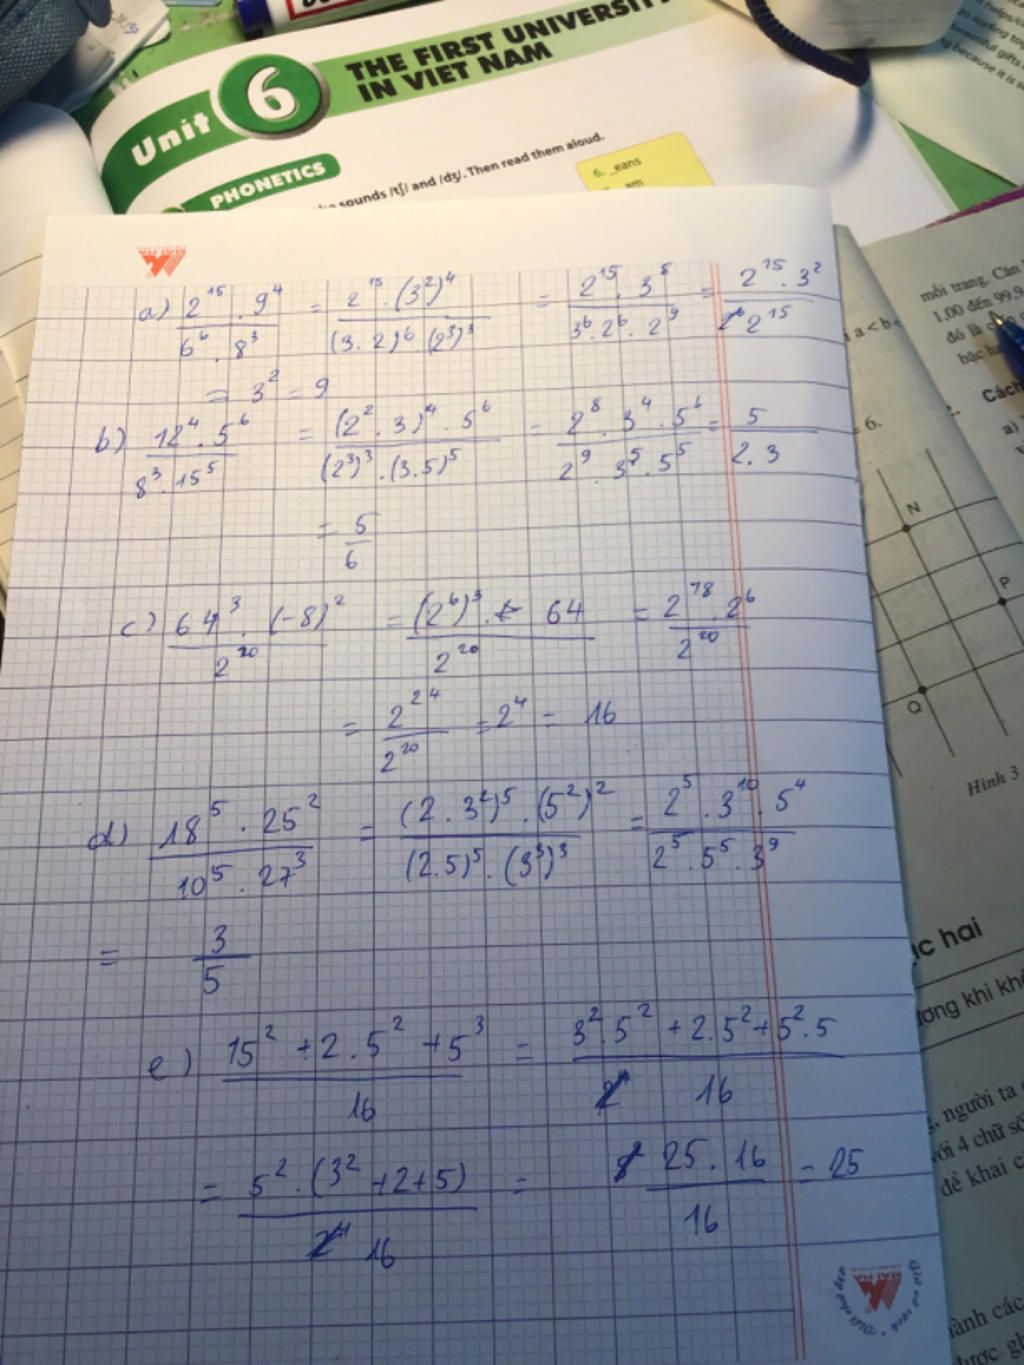 Unit 6 THE FIRST UNIVERSITY
IN VIET NAM
PHONETICS
sounds /tʃ/ and /dʒ/. Then read them aloud.
6. _eans
am
because it is
a) 2^15 . 9^4 / 6^6 . 8^3 = 2^15 . (3^2)^4 / (3.2)^6 . (2^3)^3 = 2^15 . 3^8 / 3^6 . 2^6 . 2^9 = 2^15 . 3^2 / 2^15
= 3^2 = 9
b) 12^4 . 5^6 / 8^3 . 15^5 = (2^2 . 3)^4 . 5^6 / (2^3)^3 . (3.5)^5 = 2^8 . 3^4 . 5^6 / 2^9 . 3^5 . 5^5 = 5 / 2.3
= 5/6
c) 64^3 . (-8)^2 / 2^20 = (2^6)^3 . 64 / 2^20 = 2^18 . 2^6 / 2^20
= 2^24 / 2^20 = 2^4 = 16
d) 18^5 . 25^2 / 10^5 . 27^3 = (2 . 3^2)^5 . (5^2)^2 / (2.5)^5 . (3^3)^3 = 2^5 . 3^10 . 5^4 / 2^5 . 5^5 . 3^9
= 3/5
e) 15^2 + 2.5^2 + 5^3 / 16 = 3^2 . 5^2 + 2.5^2 + 5^2 . 5 / 16
= 5^2 . (3^2 + 2 + 5) / 16 = 25 . 16 / 16 = 25
MAI HA
môi trang. Căn
1.00 đến 99.9
đó là
bậc ha
a < b
Cách
a)
= 6.
N
P
Q
Hình 3
ục hai
ương khi kh
, người ta
với 4 chữ số
đẻ khai c
hành các
được gh